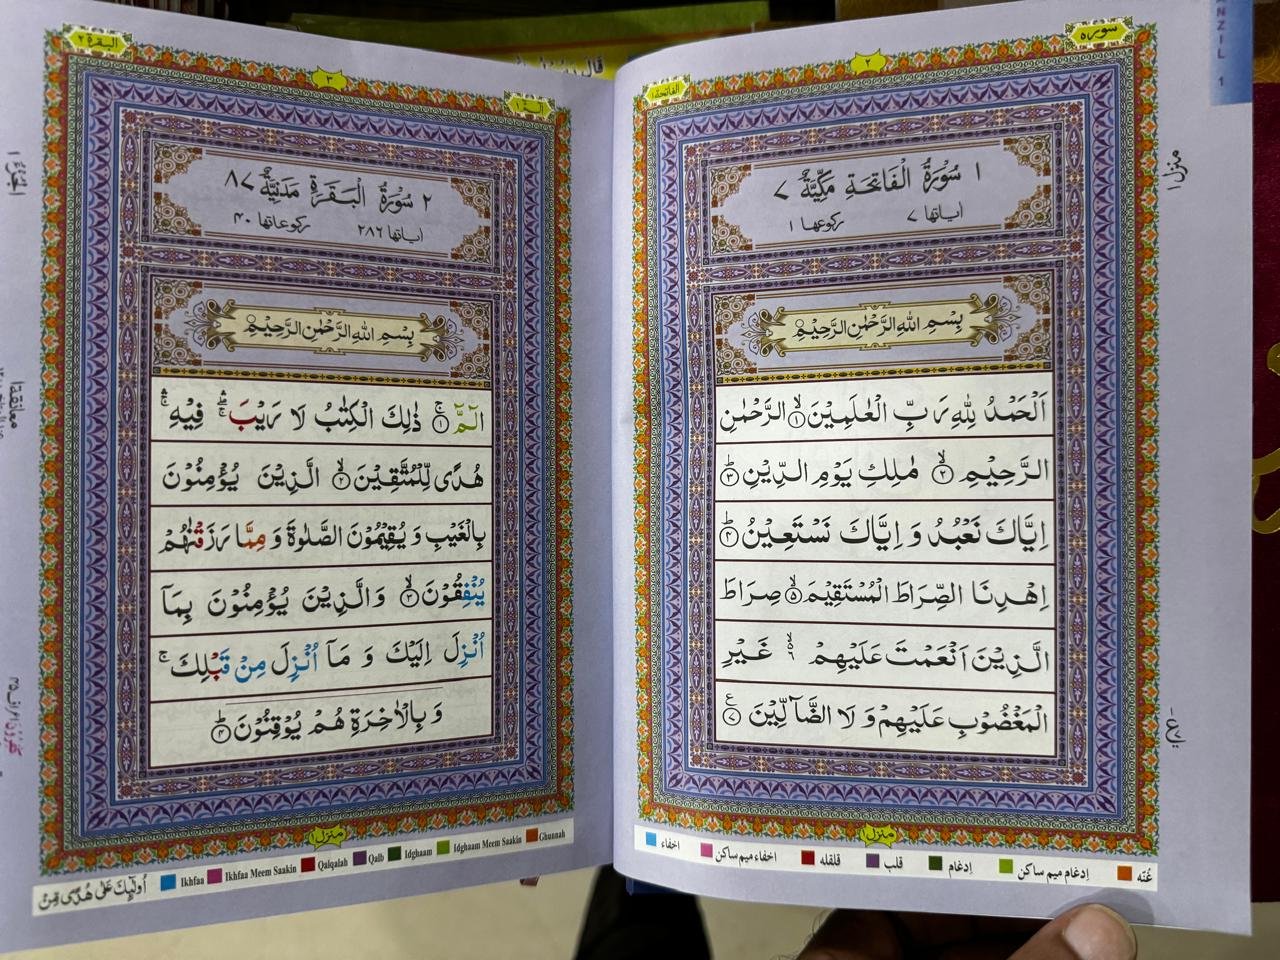 سورة
٢
الفاتحة ١
ANZIL 1
منزل ١
١ سُوْرَةُ الْفَاتِحَةِ مَكِّيَّةٌ ٧
اٰیاتها ٧ رکوعها ١
بِسْمِ اللهِ الرَّحْمٰنِ الرَّحِيْمِ
اَلْحَمْدُ لِلّٰهِ رَبِّ الْعٰلَمِيْنَ ۙ﴿١﴾ الرَّحْمٰنِ
الرَّحِيْمِ ۙ﴿٢﴾ مٰلِكِ يَوْمِ الدِّيْنِ ؕ﴿٣﴾
اِيَّاكَ نَعْبُدُ وَ اِيَّاكَ نَسْتَعِيْنُ ؕ﴿٤﴾
اِهْدِنَا الصِّرَاطَ الْمُسْتَقِيْمَ ۙ﴿٥﴾ صِرَاطَ
الَّذِيْنَ اَنْعَمْتَ عَلَيْهِمْ ۙ٦ غَيْرِ
الْمَغْضُوْبِ عَلَيْهِمْ وَ لَا الضَّآلِّيْنَ ﴿٧﴾
منزل ١
غُنّه اِدغام ميم ساكن اِدغام قلب قلقله اخفاء ميم ساكن اخفاء
البقرة ٢
٣
الٓمّٓ ١
الجزء ١
٢ سُوْرَةُ الْبَقَرَةِ مَدَنِيَّةٌ ٨٧
اٰیاتها ٢٨٦ رکوعاتها ٤٠
بِسْمِ اللهِ الرَّحْمٰنِ الرَّحِيْمِ
الٓمّٓ ۚ﴿١﴾ ذٰلِكَ الْكِتٰبُ لَا رَيْبَ ۛۖ فِيْهِ ۛۚ
هُدًى لِّلْمُتَّقِيْنَ ۙ﴿٢﴾ الَّذِيْنَ يُؤْمِنُوْنَ
بِالْغَيْبِ وَ يُقِيْمُوْنَ الصَّلٰوةَ وَ مِمَّا رَزَقْنٰهُمْ
يُنْفِقُوْنَ ۙ﴿٣﴾ وَ الَّذِيْنَ يُؤْمِنُوْنَ بِمَآ
اُنْزِلَ اِلَيْكَ وَ مَآ اُنْزِلَ مِنْ قَبْلِكَ ۚ
وَ بِالْاٰخِرَةِ هُمْ يُوْقِنُوْنَ ؕ﴿٤﴾
منزل ١
Ikhfaa Ikhfaa Meem Saakin Qalqalah Qalb Idghaam Idghaam Meem Saakin Ghunnah
اُولٰٓئِكَ عَلٰى هُدًى مِّنْ